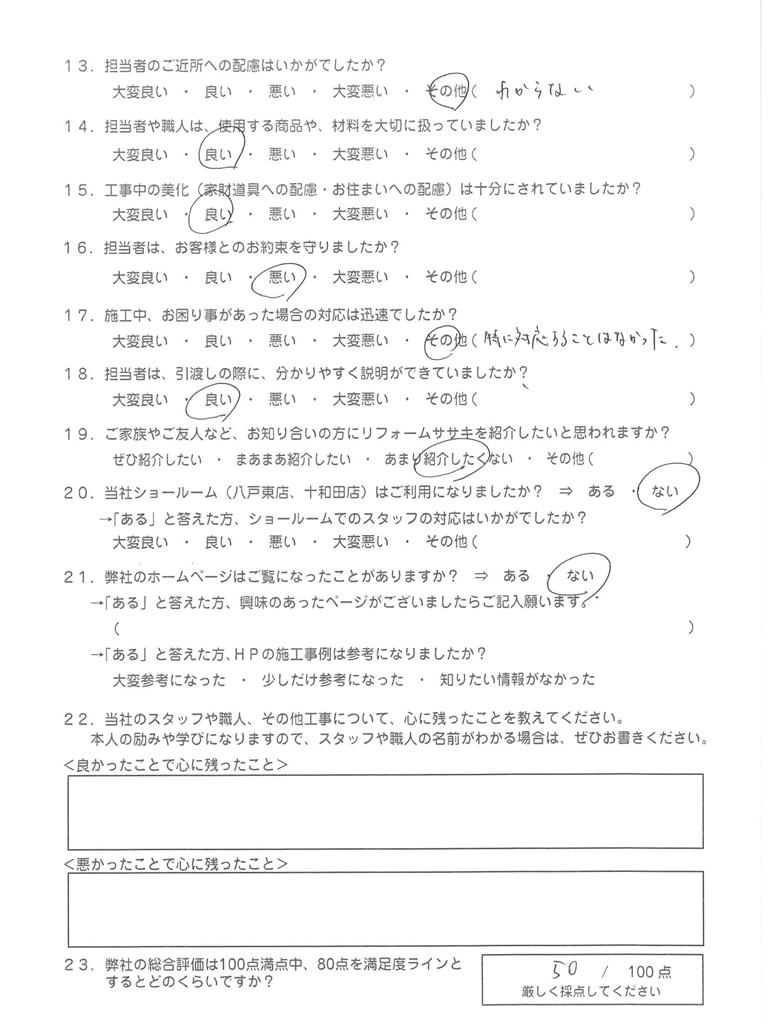 13．担当者のご近所への配慮はいかがでしたか？
大変良い ・ 良い ・ 悪い ・ 大変悪い ・ その他( わからない )
14．担当者や職人は、使用する商品や、材料を大切に扱っていましたか？
大変良い ・ 良い ・ 悪い ・ 大変悪い ・ その他( )
15．工事中の美化（家財道具への配慮・お住まいへの配慮）は十分にされていましたか？
大変良い ・ 良い ・ 悪い ・ 大変悪い ・ その他( )
16．担当者は、お客様とのお約束を守りましたか？
大変良い ・ 良い ・ 悪い ・ 大変悪い ・ その他( )
17．施工中、お困り事があった場合の対応は迅速でしたか？
大変良い ・ 良い ・ 悪い ・ 大変悪い ・ その他( 特に対応することはなかった. )
18．担当者は、引渡しの際に、分かりやすく説明ができていましたか？
大変良い ・ 良い ・ 悪い ・ 大変悪い ・ その他( )
19．ご家族やご友人など、お知り合いの方にリフォームササキを紹介したいと思われますか？
ぜひ紹介したい ・ まあまあ紹介したい ・ あまり紹介したくない ・ その他( )
20．当社ショールーム（八戸東店、十和田店）はご利用になりましたか？ ⇒ ある ・ ない
→「ある」と答えた方、ショールームでのスタッフの対応はいかがでしたか？
大変良い ・ 良い ・ 悪い ・ 大変悪い ・ その他( )
21．弊社のホームページはご覧になったことがありますか？ ⇒ ある ・ ない
→「ある」と答えた方、興味のあったページがございましたらご記入願います。
( )
→「ある」と答えた方、ＨＰの施工事例は参考になりましたか？
大変参考になった ・ 少しだけ参考になった ・ 知りたい情報がなかった
22．当社のスタッフや職人、その他工事について、心に残ったことを教えてください。
本人の励みや学びになりますので、スタッフや職人の名前がわかる場合は、ぜひお書きください。
＜良かったことで心に残ったこと＞
＜悪かったことで心に残ったこと＞
23．弊社の総合評価は100点満点中、80点を満足度ラインと
するとどのくらいですか？
50 / 100点
厳しく採点してください